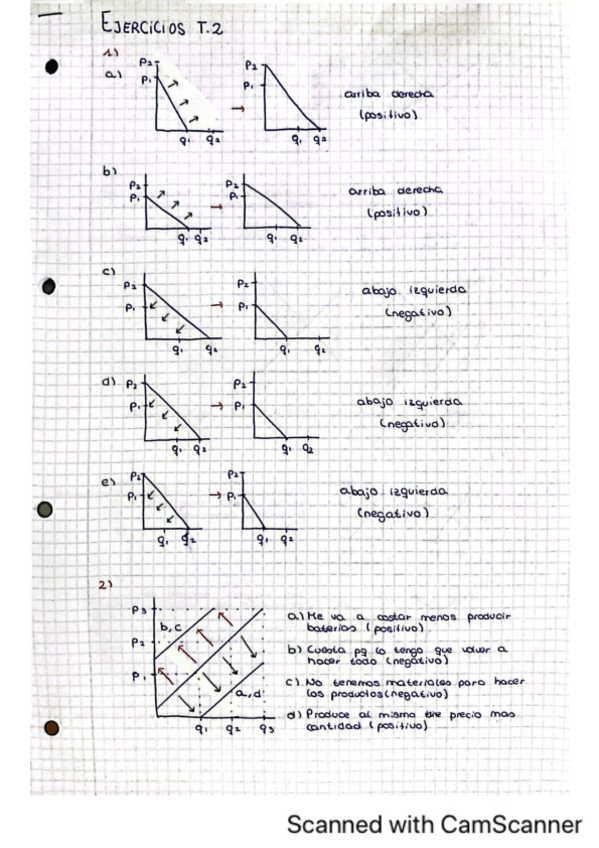 EJERCICIOS T.2
1)
a)
P2
P1
q1 q2
P2
P1
q1 q2
arriba derecha
(positivo)
b)
P2
P1
q1 q2
P2
P1
q1 q2
arriba derecha
(positivo)
c)
P2
P1
q1 q2
P2
P1
q1 q2
abajo izquierda
(negativo)
d)
P2
P1
q1 q2
P2
P1
q1 q2
abajo izquierda
(negativo)
e)
P2
P1
q1 q2
P2
P1
q1 q2
abajo izquierda
(negativo)
2)
P3
P2
P1
b, c
a, d
q1 q2 q3
a) Me va a costar menos producir
baterias (positivo)
b) Cuesta pq lo tengo que volver a
hacer todo (negativo)
c) No tenemos materiales para hacer
los productos (negativo)
d) Produce al mismo precio mas
cantidad (positivo)
Scanned with CamScanner